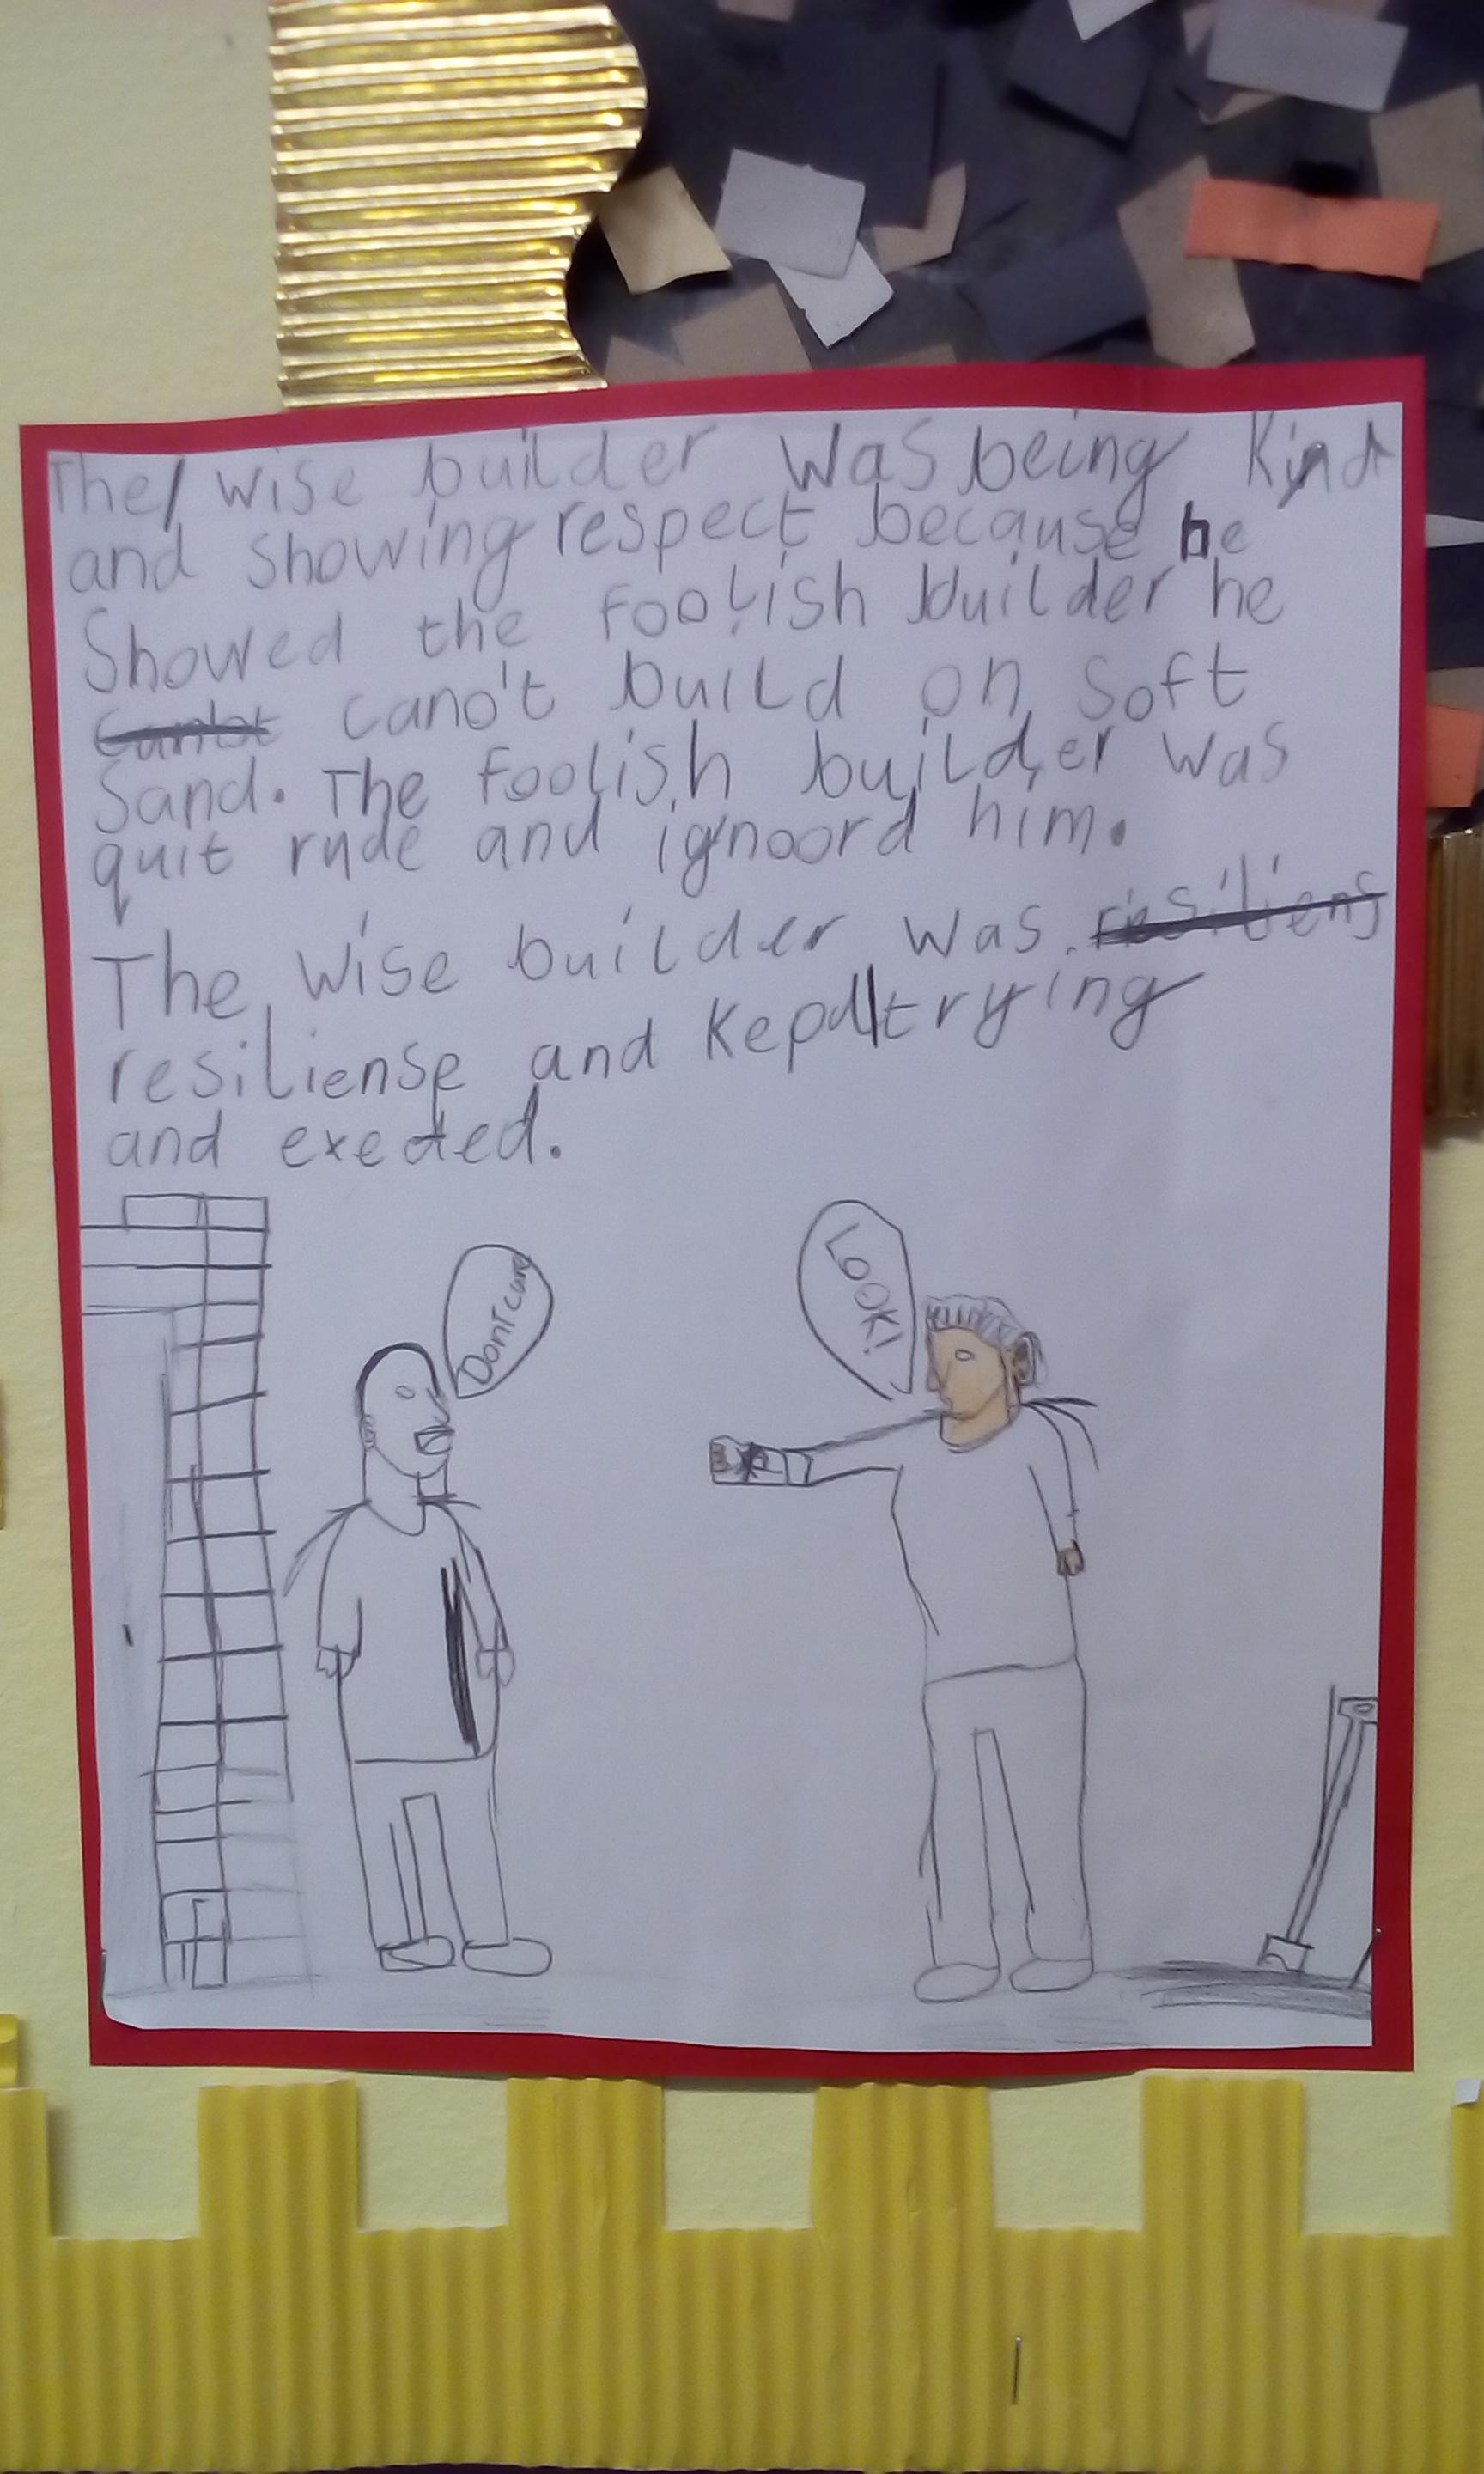 The wise builder was being kind
and showing respect because he
Showed the foolish builder he
cano't build on soft
sand. The foolish builder was
quit rude and ignoord him.
The wise builder was resiliens
resiliense and kepd trying
and exeded.
Dont care
LOOK!